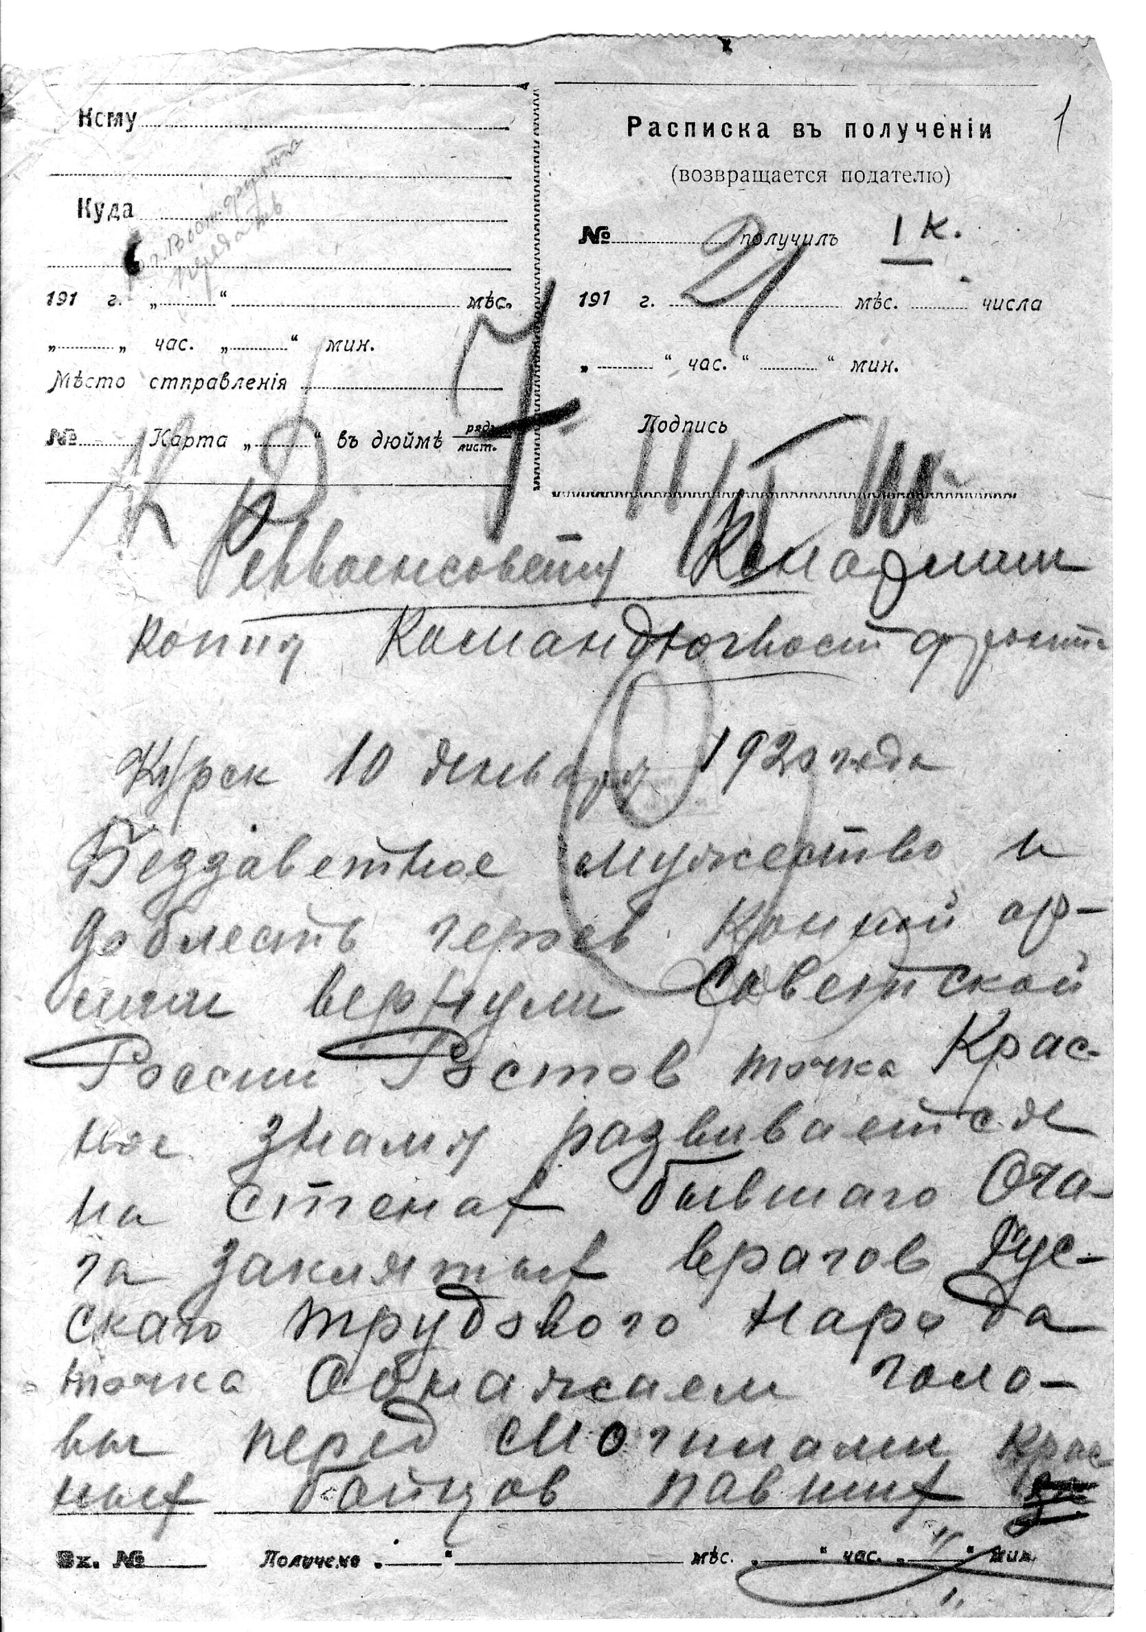 Кому
Куда
Юговост фронта
передать
191 г. „ “ мѣс.
„ „ час. „ “ мин.
Мѣсто отправленія
№ Карта „ “ въ дюймѣ рядъ лист.
Расписка въ полученіи
(возвращается подателю)
1
№ получилъ I к.
21
191 г. мѣс. числа
„ “ час. “ “ мин.
Подпись
Реввоенсовету Конармии
копия Командюгвостфронта
Курск 10 января 1920 года
Беззаветное мужество и
доблесть героев Конной ар-
мии вернули Советской
России Ростов точка Крас-
ное знамя развивается
на стенах бывшаго Оча-
га заклятых врагов Рус-
скаго трудового народа
точка Обнажаем голо-
вы перед могилами крас
ных бойцов павших
Вх. № Получено „ “ мѣс. „ “ час. „ “ мин.